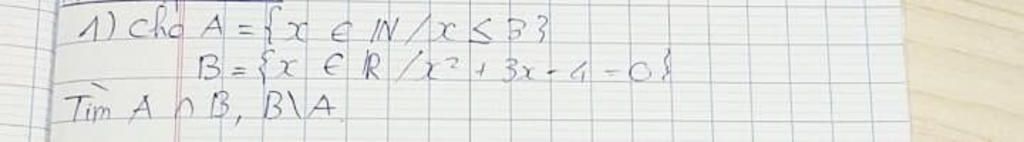 1) Cho A = {x ∈ ℕ / x ≤ 3}
B = {x ∈ ℝ / x² + 3x - 4 = 0}
Tìm A ∩ B, B\A